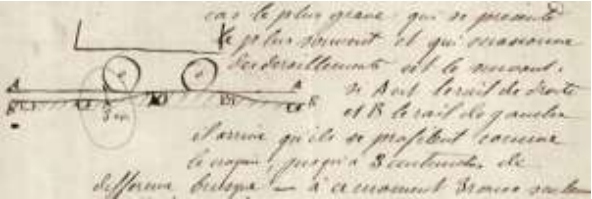 cas le plus grave qui se présente
le plus souvent et qui occasionne
des déraillements est le suivant :
si A est le rail de droite
et B le rail de gauche
il arrive qu'ils se profilent comme
le croquis, jusqu'à 3 centimètres de
différence brusque — à ce moment 3 roues seulement
A
A
B
B
3 cm